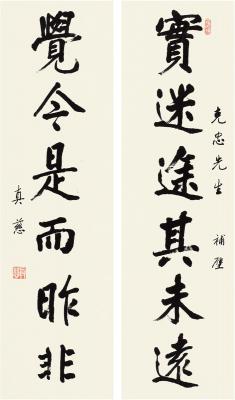 實迷途其未遠
克忠先生 補壁
覺今是而昨非
真慈